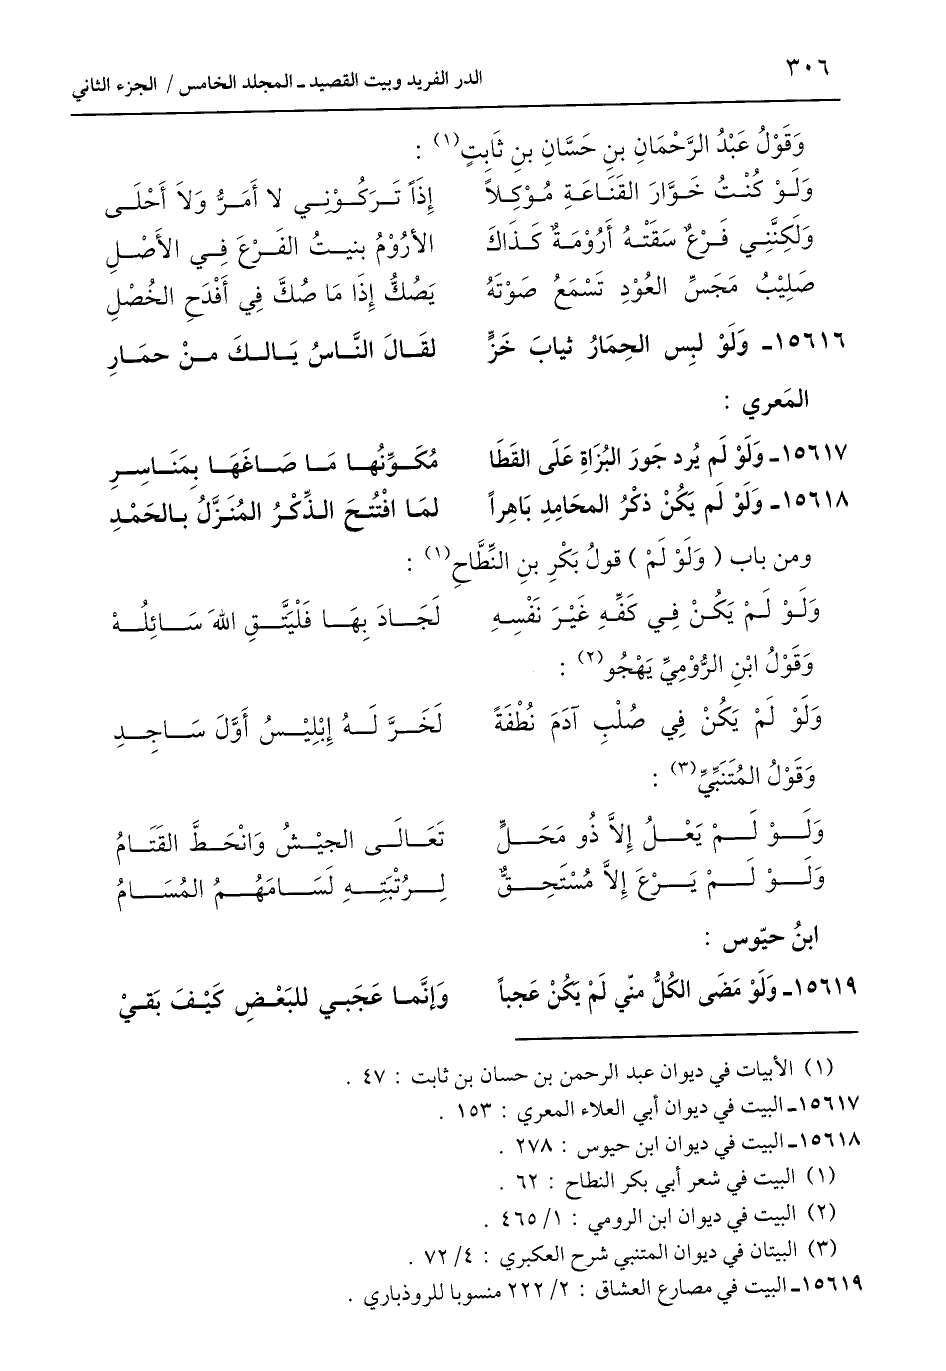 ٣٠٦
الدر الفريد وبيت القصيد ـ المجلد الخامس / الجزء الثاني
وَقَوْلُ عَبْدُ الرَّحْمَانِ بنِ حَسَّانِ بنِ ثَابِتٍ(١) :
وَلَوْ كُنْتُ خَوَّارَ القَنَاعَةِ مُوْكِلاً إِذَاً تَرَكُوْنِي لا أَمَرُّ وَلاَ أَحْلَى
وَلَكِنَّنِي فَرْعٌ سَقَتْهُ أَرُوْمَةٌ كَذَاكَ الأَرُوْمُ بنيتُ الفَرْعَ فِي الأَصْلِ
صَلِيْبُ مَجَسِّ العُوْدِ تَسْمَعُ صَوْتَهُ يَصُكُّ إِذَا مَا صُكَّ فِي أَقْدَحِ الخُصْلِ
١٥٦١٦ـ وَلَوْ لبِس الحِمَارُ ثيابَ خَزٍّ لقَالَ النَّاسُ يَالكَ منْ حمَارِ
المَعري :
١٥٦١٧ـ وَلَوْ لَم يُرد جَورَ البُزَاةِ عَلَى القَطَا مُكَوِّنُها مَا صَاغَهَا بِمَنَاسِرِ
١٥٦١٨ـ وَلَوْ لَم يَكُنْ ذكْرُ المحَامِدِ بَاهِراً لمَا افْتُتحَ الذِّكْرُ المُنَزَّلُ بالحَمْدِ
ومن باب ( وَلَوْ لَمْ ) قولُ بَكْرِ بنِ النِّطَّاحِ(١) :
وَلَوْ لَمْ يَكُنْ فِي كَفِّهِ غَيْرَ نَفْسِهِ لَجَادَ بِهَا فَلْيَتَّقِ اللهَ سَائِلُهْ
وَقَوْلُ ابْنِ الرُّوْمِيِّ يَهْجُو(٢) :
وَلَوْ لَمْ يَكُنْ فِي صُلْبِ آدَمَ نُطْفَةً لَخَرَّ لَهُ إِبْلِيْسُ أَوَّلَ سَاجِدِ
وَقَوْلُ المُتَنَبِّيِّ(٣) :
وَلَوْ لَمْ يَعْلُ إِلاَّ ذُو مَحَلٍّ تَعَالَى الجيْشُ وَانْحَطَّ القَتَامُ
وَلَوْ لَمْ يَرْعَ إِلاَّ مُسْتَحِقٌّ لِرُتْبَتِهِ لَسَامَهُمُ المُسَامُ
ابنُ حيّوس :
١٥٦١٩ـ وَلَوْ مَضَى الكُلُّ منّي لَمْ يَكُنْ عَجباً وَإنَّما عَجَبي للبَعْضِ كَيْفَ بَقيْ
(١) الأبيات في ديوان عبد الرحمن بن حسان بن ثابت : ٤٧ .
١٥٦١٧ـ البيت في ديوان أبي العلاء المعري : ١٥٣ .
١٥٦١٨ـ البيت في ديوان ابن حيوس : ٢٧٨ .
(١) البيت في شعر أبي بكر النطاح : ٦٢ .
(٢) البيت في ديوان ابن الرومي : ١/ ٤٦٥ .
(٣) البيتان في ديوان المتنبي شرح العكبري : ٤/ ٧٢ .
١٥٦١٩ـ البيت في مصارع العشاق : ٢/ ٢٢٢ منسوبا للروذباري .